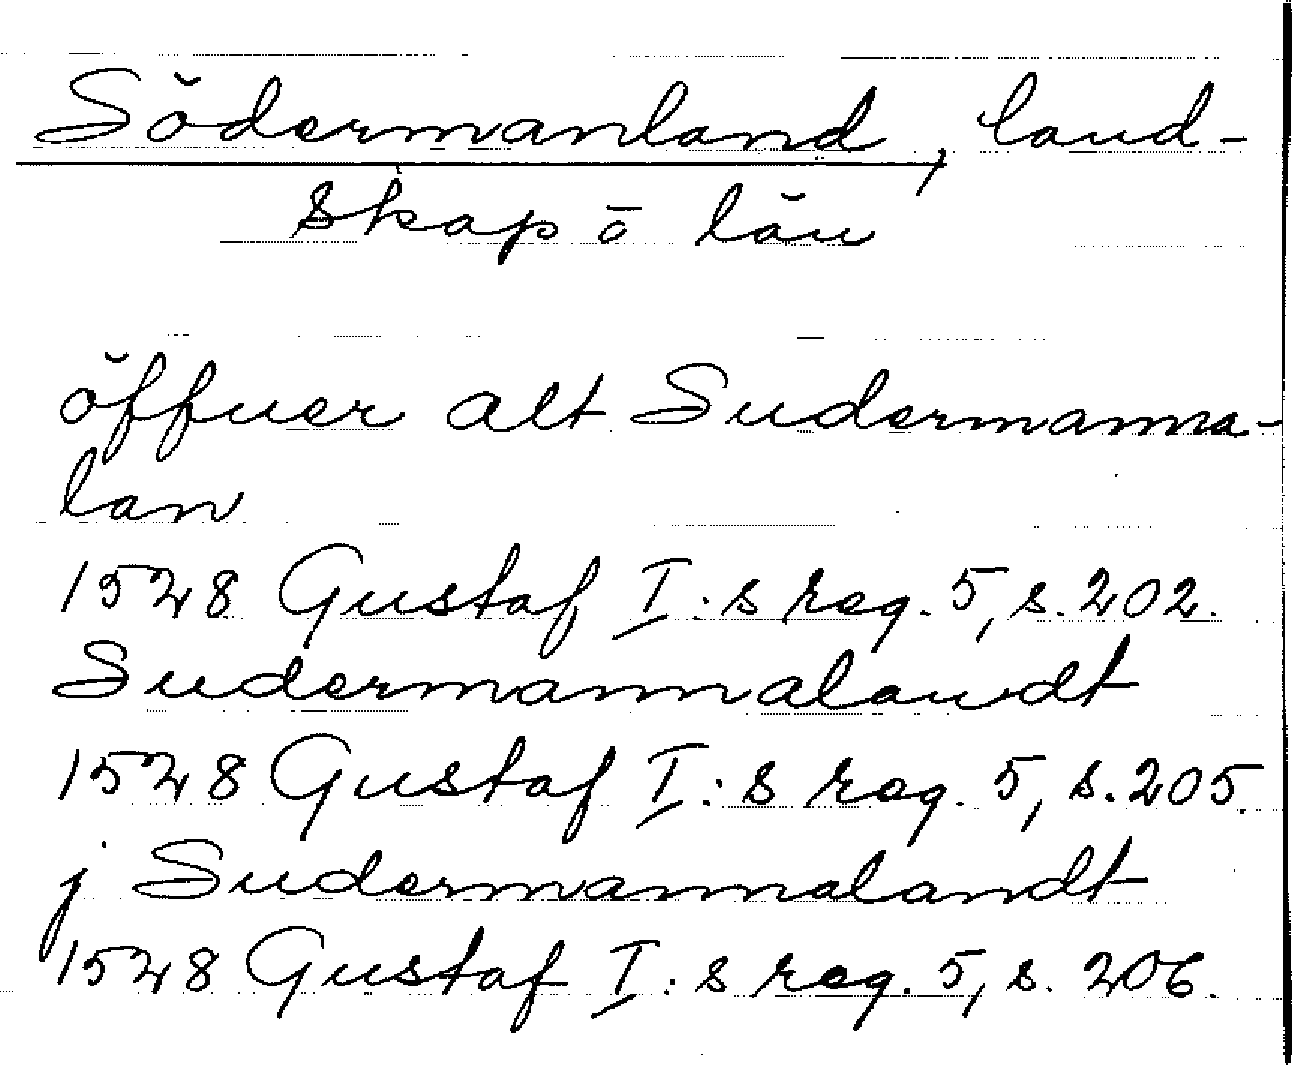 Södermanland, land-
skap o län
öffuer alt Sudermanna-
lan
1528 Gustaf I:s reg. 5, s. 202.
Sudermannalandt
1528 Gustaf I:s reg. 5, s. 205.
j Sudermannalandt
1528 Gustaf I:s reg. 5, s. 206.